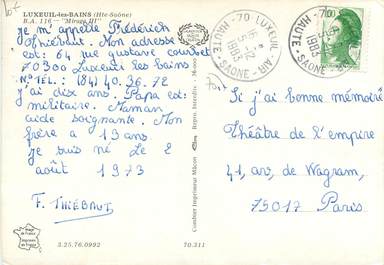 LUXEUIL-les-BAINS (Hte-Saône)
B.A. 116 — "Mirage III"
je m'appelle Frédérich
Thiébaut. Mon adresse
est: 64 rue gustave courbet
70300 Luxeuil les bains
N° TÉL.: (84) 40.36.72
j'ai dix ans. Papa est
militaire. Maman
aide soignante. Mon
frère a 19 ans.
je suis né Le 2
août 1973
F. THIÉBAUT
3.25.76.0992
70.311
Combier Imprimeur Mâcon
70 - LUXEUIL - AIR
HAUTE - SAONE
1984
HAUTE - SAONE
1984
1,00
Si j'ai bonne mémoire
Théâtre de l'empire
41, av, de Wagram,
75017 Paris